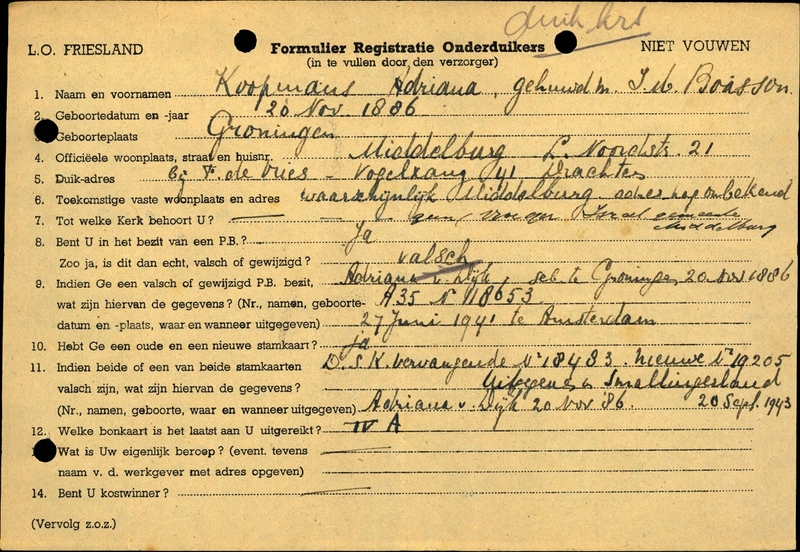 duikers
L.O. FRIESLAND Formulier Registratie Onderduikers NIET VOUWEN
(in te vullen door den verzorger)
1. Naam en voornamen Koopmans Adriana, gehuwd m. I.W. Boasson.
2. Geboortedatum en -jaar 20 Nov. 1886
3. Geboorteplaats Groningen
4. Officiëele woonplaats, straat en huisnr. Middelburg L. Noordstr. 21
5. Duik-adres bij F. de Vries - Vogelzang 41 Drachten
6. Toekomstige vaste woonplaats en adres waarschijnlijk Middelburg adres nog onbekend
7. Tot welke Kerk behoort U? geen, vroeger Isrel. gemeente
Middelburg
8. Bent U in het bezit van een P.B.? Ja
Zoo ja, is dit dan echt, valsch of gewijzigd? valsch
9. Indien Ge een valsch of gewijzigd P.B. bezit, Adriana v. Dijk, geb. te Groningen 20 Nov 1886
wat zijn hiervan de gegevens? (Nr., namen, geboorte- A35 N 118653
datum en -plaats, waar en wanneer uitgegeven) 27 Juni 1941 te Amsterdam
10. Hebt Ge een oude en een nieuwe stamkaart? ja
11. Indien beide of een van beide stamkaarten D.S.K. vervangende No 18483 nieuwe No 19205
valsch zijn, wat zijn hiervan de gegevens? Uitgegeven Smallingerland
(Nr., namen, geboorte, waar en wanneer uitgegeven) Adriana v. Dijk 20 Nov '86. 20 Sept. 1943
12. Welke bonkaart is het laatst aan U uitgereikt? IV A
Wat is Uw eigenlijk beroep? (event. tevens
naam v. d. werkgever met adres opgeven)
14. Bent U kostwinner?
(Vervolg z.o.z.)